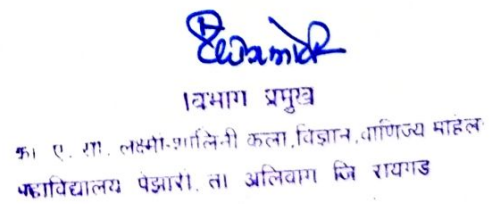 विभाग प्रमुख
को ए. सो. लक्ष्मी-शालिनी कला, विज्ञान, वाणिज्य महिला
महाविद्यालय पेझारी, ता अलिबाग जि रायगड